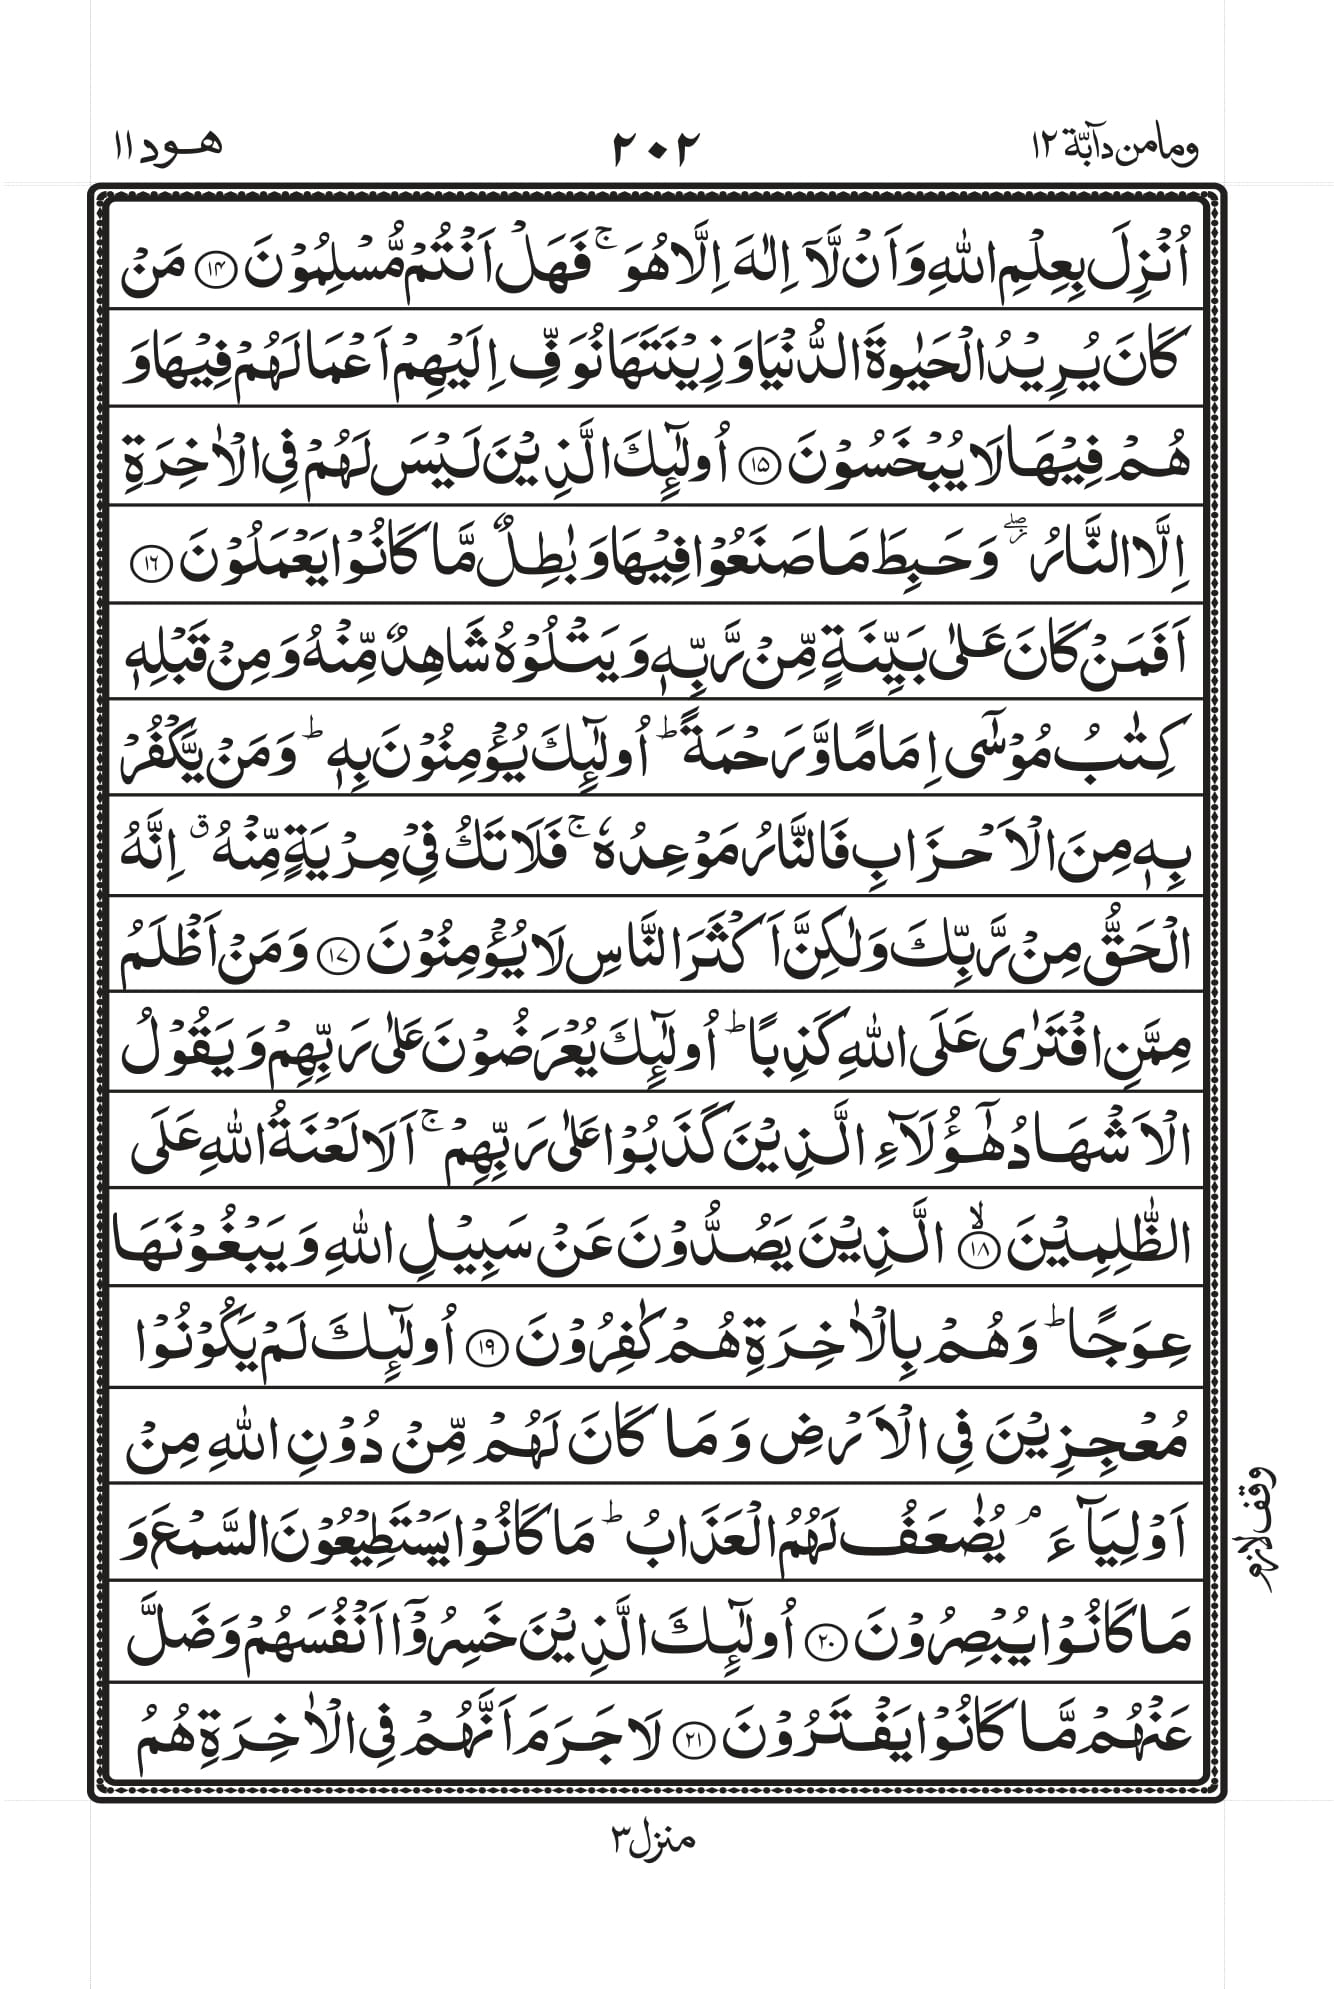 ومامن دآبة ١٢
٢٠٢
هود ١١
اُنۡزِلَ بِعِلۡمِ اللّٰهِ وَاَنۡ لَّاۤ اِلٰهَ اِلَّا هُوَ‌ ۚ فَهَلۡ اَنۡتُمۡ مُّسۡلِمُوۡنَ ﴿۱۴﴾ مَنۡ
كَانَ يُرِيۡدُ الۡحَيٰوةَ الدُّنۡيَا وَزِيۡنَتَهَا نُوَفِّ اِلَيۡهِمۡ اَعۡمَالَهُمۡ فِيۡهَا وَ
هُمۡ فِيۡهَا لَا يُبۡخَسُوۡنَ ﴿۱۵﴾ اُولٰٓٮِٕكَ الَّذِيۡنَ لَـيۡسَ لَهُمۡ فِى الۡاٰخِرَةِ
اِلَّا النَّارُ ‌ۖ‌ؗ وَحَبِطَ مَا صَنَعُوۡا فِيۡهَا وَبٰطِلٌ مَّا كَانُوۡا يَعۡمَلُوۡنَ ﴿۱۶﴾
اَفَمَنۡ كَانَ عَلٰى بَيِّنَةٍ مِّنۡ رَّبِّهٖ وَيَتۡلُوۡهُ شَاهِدٌ مِّنۡهُ وَمِنۡ قَبۡلِهٖ
كِتٰبُ مُوۡسٰٓى اِمَامًا وَّرَحۡمَةً‌  ؕ اُولٰٓٮِٕكَ يُؤۡمِنُوۡنَ بِهٖ‌ ؕ وَمَنۡ يَّكۡفُرۡ
بِهٖ مِنَ الۡاَحۡزَابِ فَالنَّارُ مَوۡعِدُهٗ‌ ۚ فَلَا تَكُ فِىۡ مِرۡيَةٍ مِّنۡهُ‌ ۗ اِنَّهُ
الۡحَقُّ مِنۡ رَّبِّكَ وَلٰكِنَّ اَكۡثَرَ النَّاسِ لَا يُؤۡمِنُوۡنَ ﴿۱۷﴾ وَمَنۡ اَظۡلَمُ
مِمَّنِ افۡتَرٰى عَلَى اللّٰهِ كَذِبًا‌ ؕ اُولٰٓٮِٕكَ يُعۡرَضُوۡنَ عَلٰى رَبِّهِمۡ وَ يَقُوۡلُ
الۡاَشۡهَادُ هٰٓؤُلَاۤءِ الَّذِيۡنَ كَذَبُوۡا عَلٰى رَبِّهِمۡ‌ ۚ اَلَا لَعۡنَةُ اللّٰهِ عَلَى
الظّٰلِمِيۡنَ ۙ‏ ﴿۱۸﴾ الَّذِيۡنَ يَصُدُّوۡنَ عَنۡ سَبِيۡلِ اللّٰهِ وَيَبۡغُوۡنَهَا
عِوَجًا ؕ وَهُمۡ بِالۡاٰخِرَةِ هُمۡ كٰفِرُوۡنَ ﴿۱۹﴾ اُولٰٓٮِٕكَ لَمۡ يَكُوۡنُوۡا
مُعۡجِزِيۡنَ فِى الۡاَرۡضِ وَمَا كَانَ لَهُمۡ مِّنۡ دُوۡنِ اللّٰهِ مِنۡ
اَوۡلِيَآءَ‌ ۘ يُضٰعَفُ لَهُمُ الۡعَذَابُ‌ ؕ مَا كَانُوۡا يَسۡتَطِيۡعُوۡنَ السَّمۡعَ وَ
وقف لازم
مَا كَانُوۡا يُبۡصِرُوۡنَ ﴿۲۰﴾ اُولٰٓٮِٕكَ الَّذِيۡنَ خَسِرُوۡۤا اَنۡفُسَهُمۡ وَضَلَّ
عَنۡهُمۡ مَّا كَانُوۡا يَفۡتَرُوۡنَ ﴿۲۱﴾ لَا جَرَمَ اَنَّهُمۡ فِى الۡاٰخِرَةِ هُمُ
منزل ٣